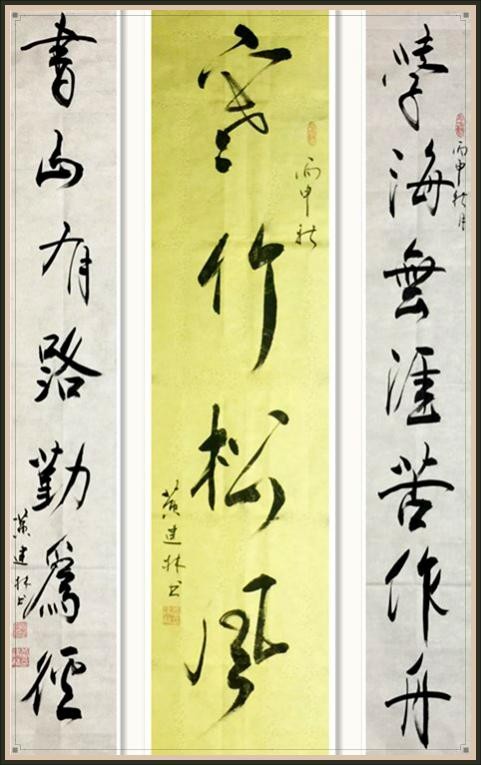 學海無涯苦作舟
丙申秋月
寒竹松風
丙申秋
黄建林书
書山有路勤爲徑
黄建林书